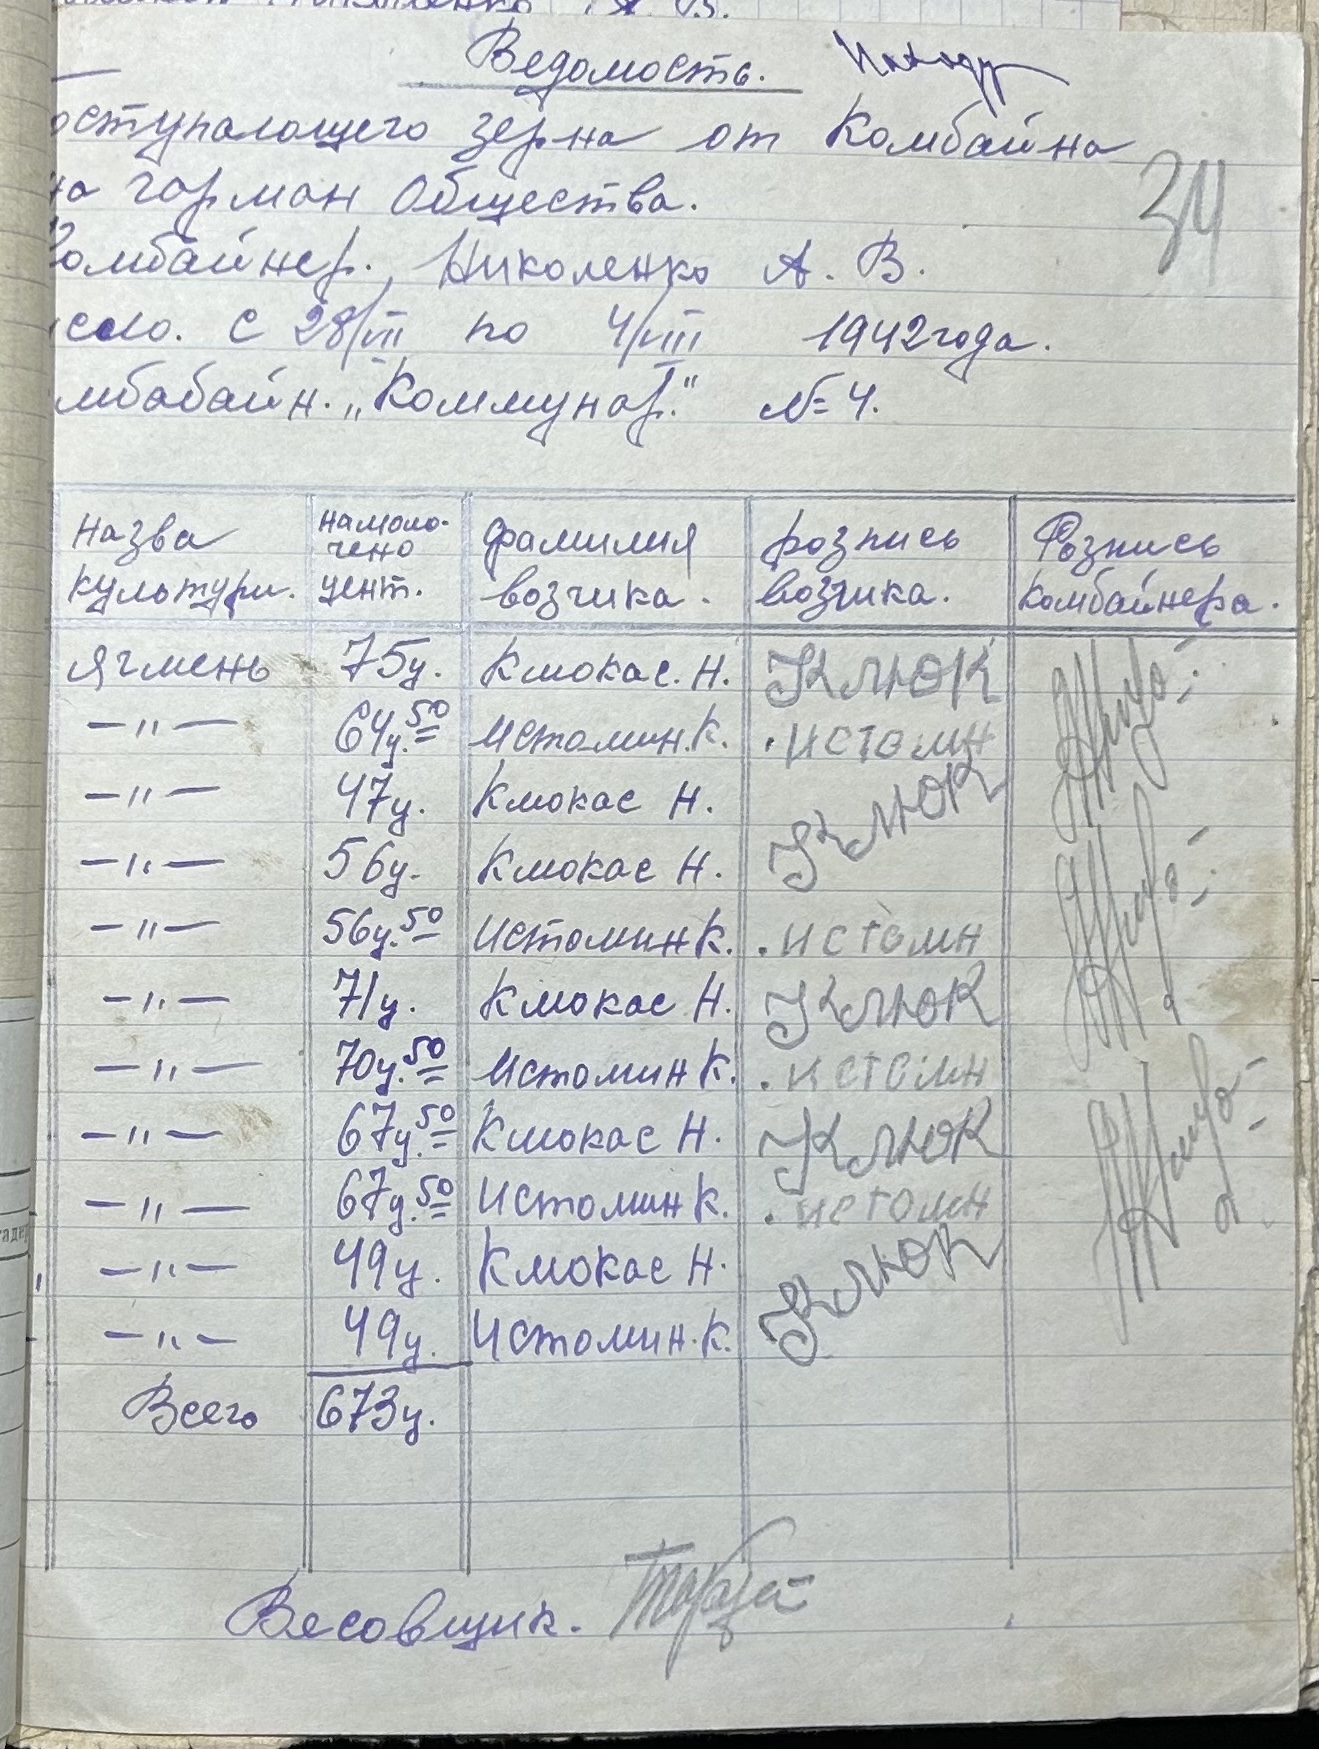 Ведомость.
оступающего зерна от Комбайна
на гарман Общества.
Комбайнер. Николенко А. В.
исло. с 28/VII по 4/VIII 1942 года.
мбабайн. „Коммунар." № 4.
34
Назва культури. | намоло-чено цент. | фамилия возчика. | розпись возчика. | Розпись комбайнера.
Ячмень 75ц. Кмокас. Н. Клюк
—"— 64ц.50 Истомин. К. истомн
—"— 47ц. Кмокас Н. Клюк
—"— 56ц. Кмокас Н.
—"— 56ц.50 Истомин К. истомн
—"— 71ц. Кмокас Н. Клюк
—"— 70ц.50 Истомин К. истомн
—"— 67ц.50 Кмокас Н. Клюк
—"— 67ц.50 Истомин К. истомн
—"— 49ц. Кмокас Н. Клюк
—"— 49ц. Истомин. К.
Всего 673ц.
Весовщик.